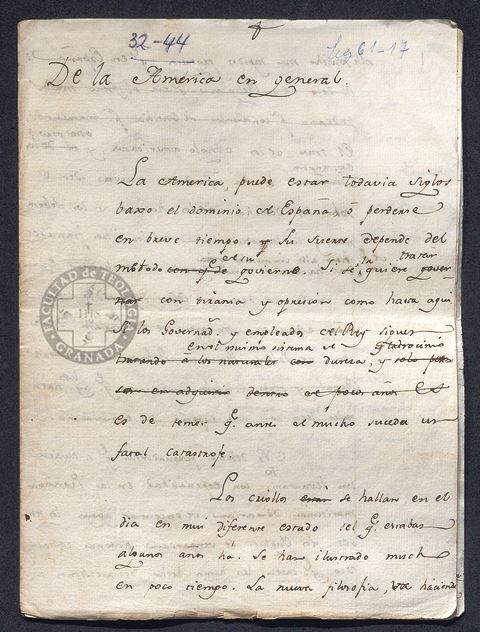 32-44
Leg 61-17
De la America en general.
La America, puede estar todavia siglos
baxo el dominio de España ó perderse
en breve tiempo. Su suerte depende del
metodo con q.e de el su govierno. Si se la quiere tratar gover-
nar con tirania y opresion como hasta aqui
Si los Governad.s y empleados del Rey siguen
en el mismo sistema de latrocinio
tratando á los naturales con dureza, y solo
en adquirir dentro de pocos años
es de temer q.e antes de mucho suceda un
fatal catastrofe.
Los criollos están se hallan en el
dia en mui diferente estado del q.e estaban
algunos anos ha. Se han ilustrado mucho
en poco tiempo. La nueva filosofia, va haciendo
FACULTAD de TEOLOGIA
IHS
GRANADA